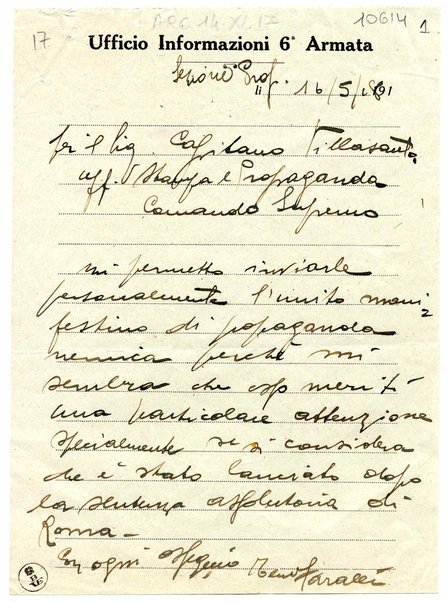 ARC 14 XI.17
10614 1
17
Ufficio Informazioni 6ª Armata
Sezione Prof
li 16/5/1891
Per il Sig. Capitano Villasanta
uff. Stampa e Propaganda
Comando Supremo
mi permetto inviarle
personalmente l'unito mani
festino di propaganda
nemica perché mi
sembra che esso meriti
una particolare attenzione
specialmente se si considera
che è stato lanciato dopo
la sentenza assolutoria di
Roma –
Con ogni ossequio